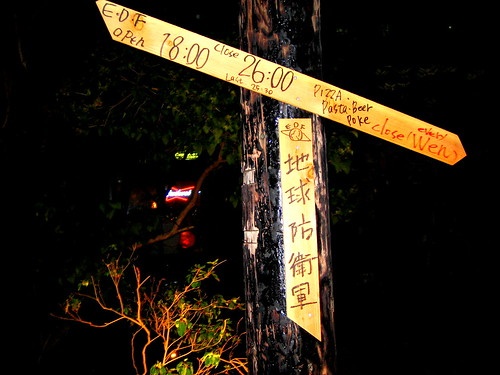 E.D.F
OPEN 18:00 close 26:00
Last 25:30
PIZZA.
Pasta.Beer
Poke
close (every Wen)
E.D.F
地球防衛軍